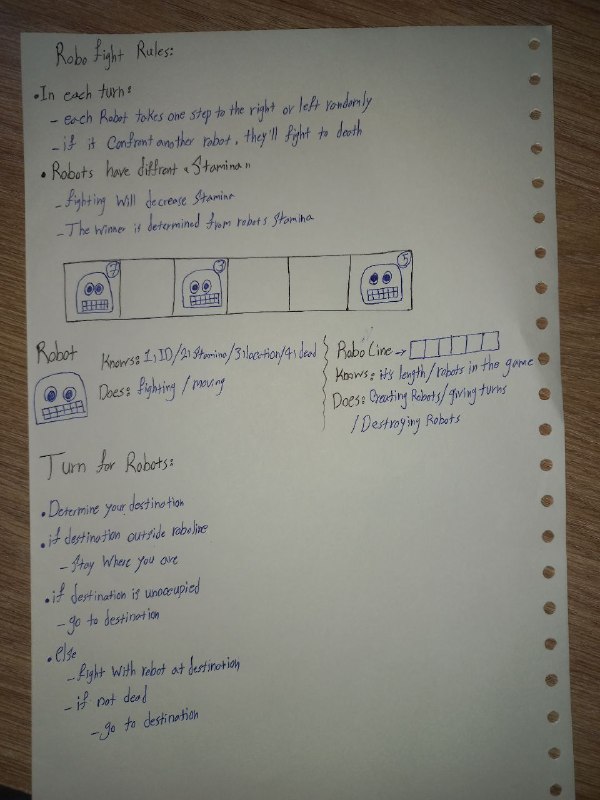 Robo fight Rules:
• In each turns
- each Robot takes one step to the right or left randomly
- if it Confront another robot, they'll fight to death
• Robots have diffrent «Stamina»
- fighting will decrease Stamina
- The winner is determined from robots Stamina
7 3 5
Robot
Knows: 1, ID/2, Stamina/3, location/4, dead
Does: fighting / moving
Robo Line →
Knows: it's length/robots in the game
Does: Creating Robots/giving turns
/ Destroying Robots
Turn for Robots:
• Determine your destination
• if destination outside roboline
- Stay Where you are
• if destination is unoccupied
- go to destination
• Else
- fight with robot at destination
- if not dead
- go to destination